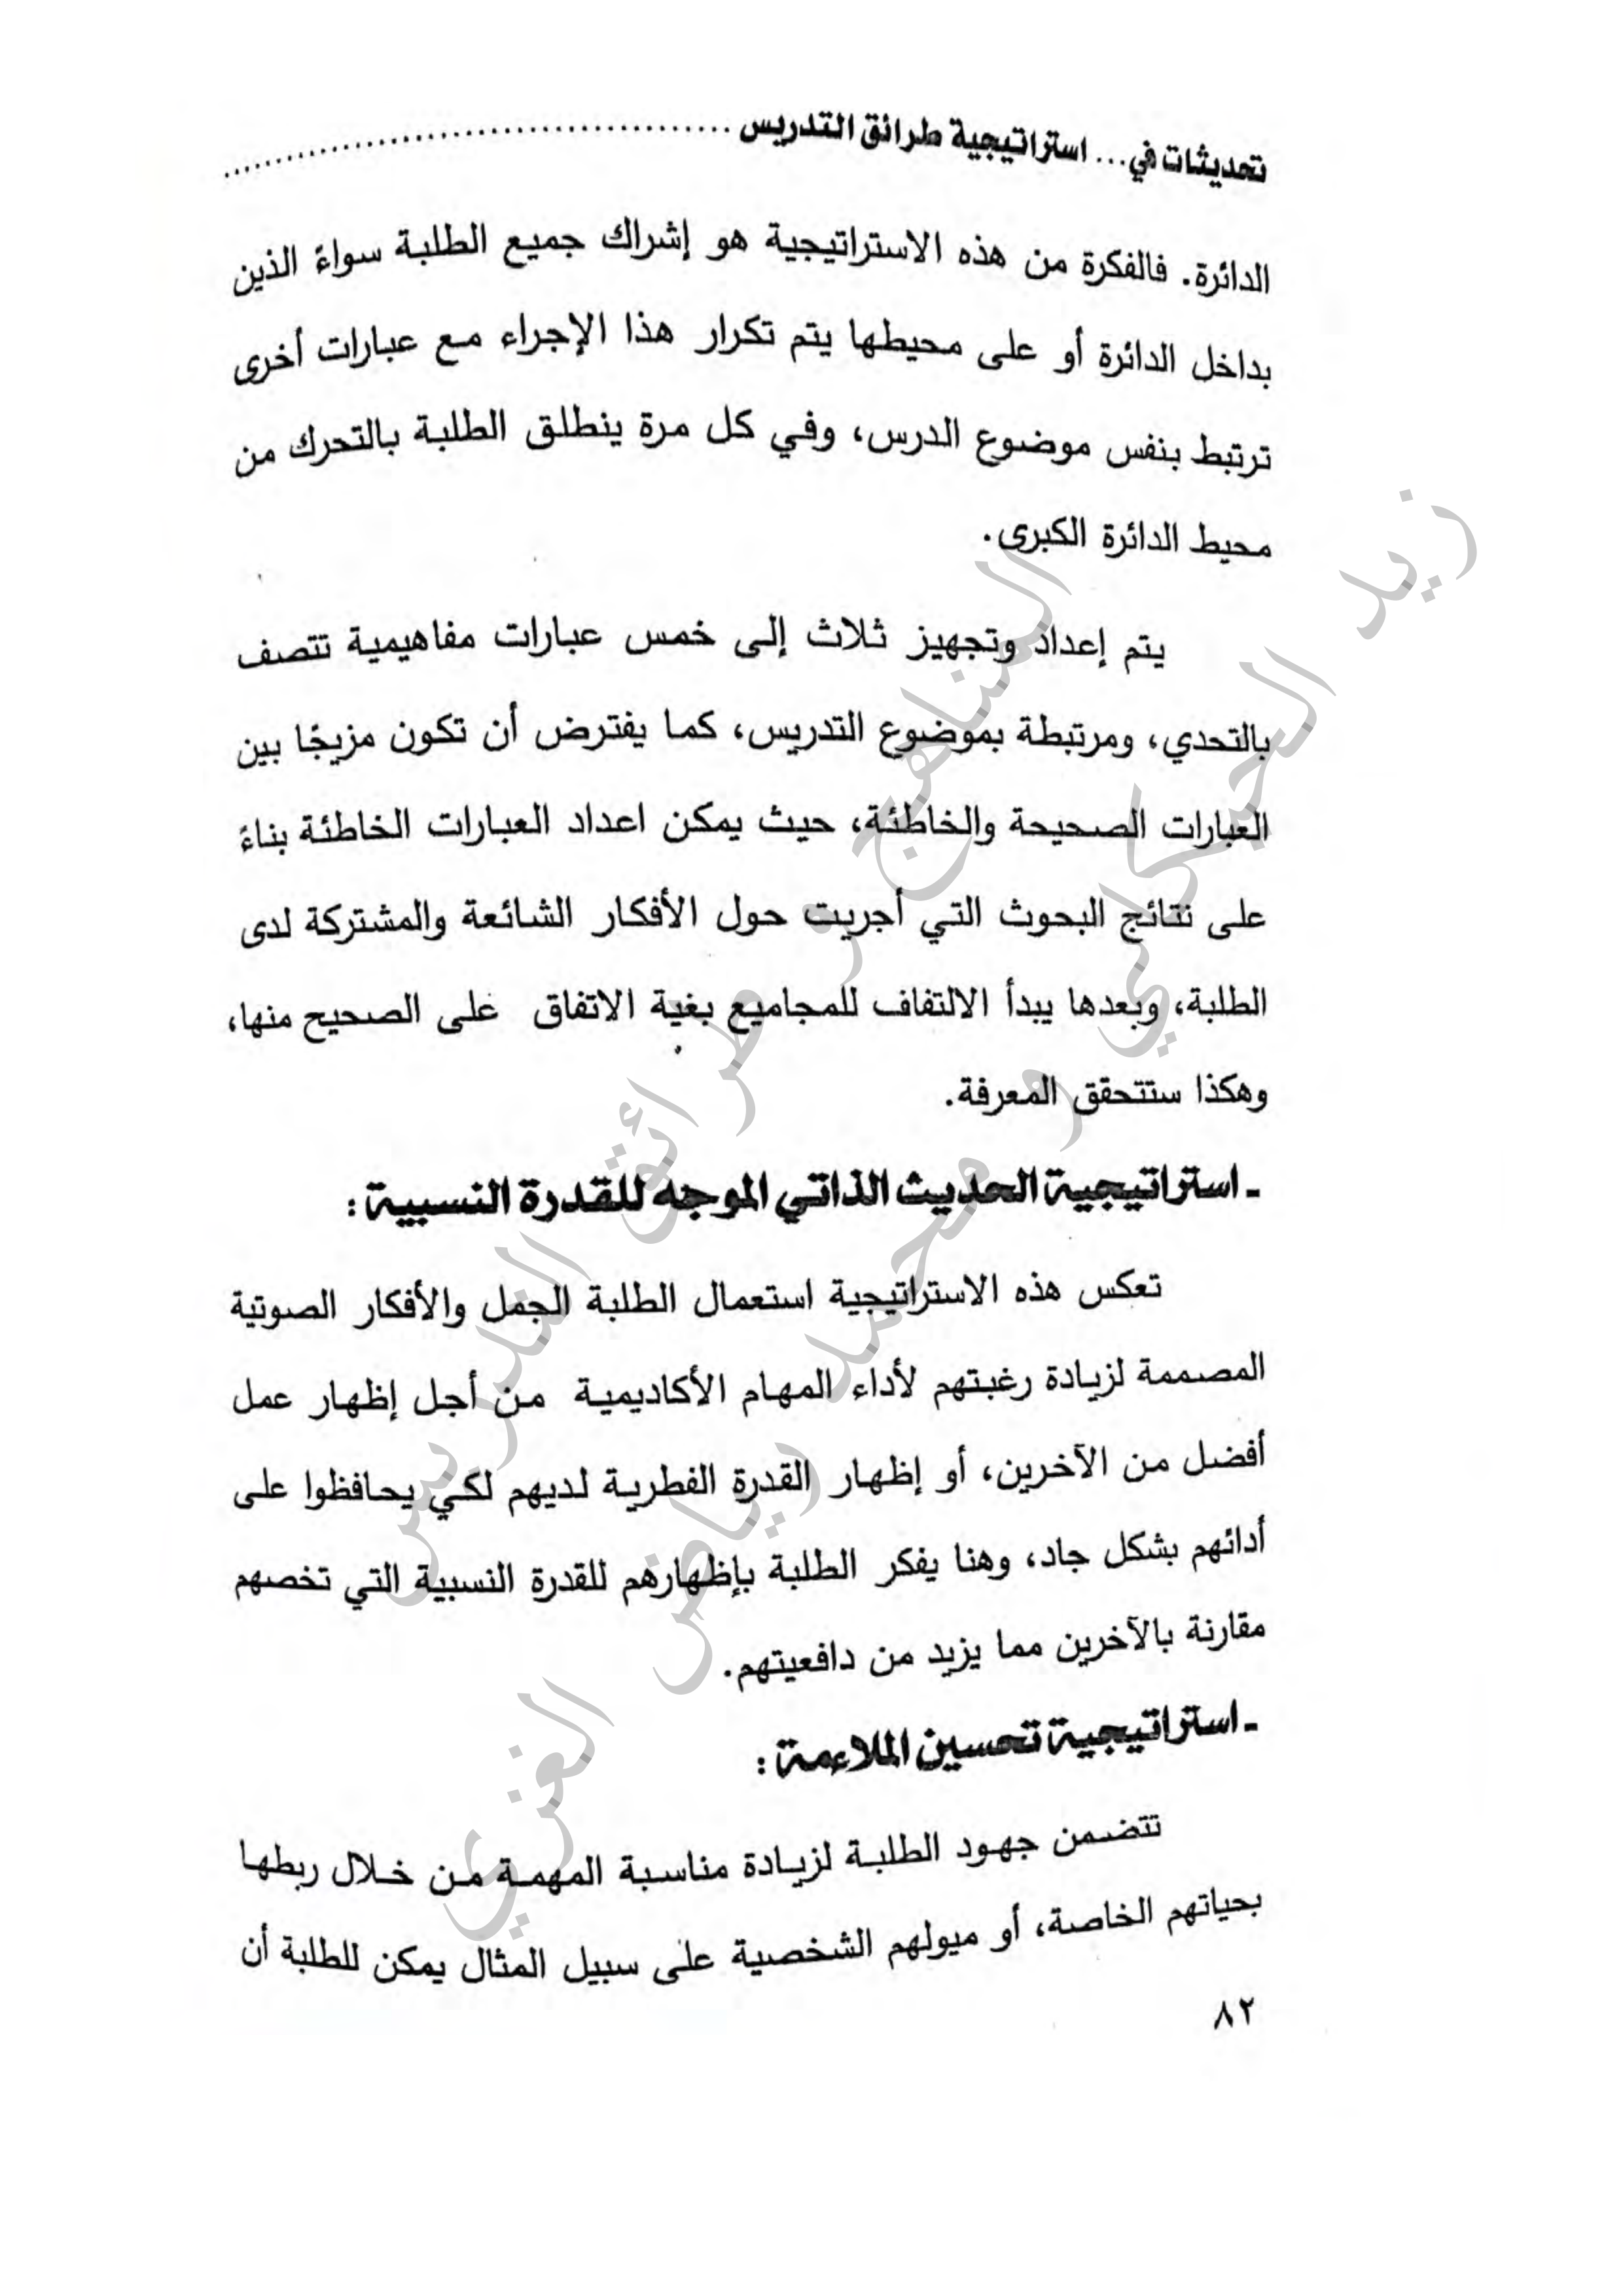 تحديثات في... استراتيجية طرائق التدريس ........................................
الدائرة. فالفكرة من هذه الاستراتيجية هو إشراك جميع الطلبة سواءً الذين
بداخل الدائرة أو على محيطها يتم تكرار هذا الإجراء مع عبارات أخرى
ترتبط بنفس موضوع الدرس، وفي كل مرة ينطلق الطلبة بالتحرك من
محيط الدائرة الكبرى.
يتم إعداد وتجهيز ثلاث إلى خمس عبارات مفاهيمية تتصف
بالتحدي، ومرتبطة بموضوع التدريس، كما يفترض أن تكون مزيجًا بين
العبارات الصحيحة والخاطئة، حيث يمكن اعداد العبارات الخاطئة بناءً
على نتائج البحوث التي أجريت حول الأفكار الشائعة والمشتركة لدى
الطلبة، وبعدها يبدأ الالتفاف للمجاميع بغية الاتفاق على الصحيح منها،
وهكذا ستتحقق المعرفة.
- استراتيجية الحديث الذاتي الموجه للقدرة النسبية :
تعكس هذه الاستراتيجية استعمال الطلبة الجمل والأفكار الصوتية
المصممة لزيادة رغبتهم لأداء المهام الأكاديمية من أجل إظهار عمل
أفضل من الآخرين، أو إظهار القدرة الفطرية لديهم لكي يحافظوا على
أدائهم بشكل جاد، وهنا يفكر الطلبة بإظهارهم للقدرة النسبية التي تخصهم
مقارنة بالآخرين مما يزيد من دافعيتهم.
- استراتيجية تحسين الملاءمة :
تتضمن جهود الطلبة لزيادة مناسبة المهمة من خلال ربطها
بحياتهم الخاصة، أو ميولهم الشخصية على سبيل المثال يمكن للطلبة أن
٨٢
المناهج و طرائق التدريس
زيد الحيكاني و محمد رياض الغزي